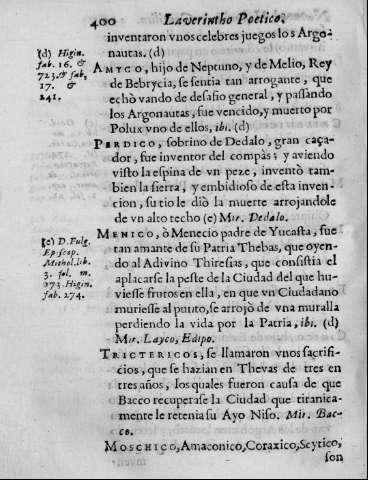 400 Laverintho Poetico.
inventaron vnos celebres juegos los Argo-
nautas. (d)
(d) Higin.
fab. 16. &
723. & fab.
17. &
241.
AMYCO, hijo de Neptuno, y de Melio, Rey
de Bebrycia, se sentia tan arrogante, que
echò vando de desafio general, y passando
los Argonautas, fue vencido, y muerto por
Polux vno de ellos, ibi. (d)
PERDICO, sobrino de Dedalo, gran caça-
dor, fue inventor del compàs; y aviendo
visto la espina de vn peze, inventò tam-
bien la sierra, y embidioso de esta inven-
cion, su tio le diò la muerte arrojandole
de vn alto techo (e) Mir. Dedalo.
(e) D. Fulg.
Episcop.
Mithol. lib.
3. fol. m.
273. Higin.
fab. 274.
MENICO, ò Menecio padre de Yucasta, fue
tan amante de su Patria Thebas, que oyen-
do al Adivino Thiresias, que consistia el
aplacarse la peste de la Ciudad del que hu-
viesse frutos en ella, en que vn Ciudadano
muriesse al punto, se arrojò de vna muralla
perdiendo la vida por la Patria, ibi. (d)
Mir. Layco, Edipo.
TRICTERICOS, se llamaron vnos sacrifi-
cios, que se hazian en Thevas de tres en
tres años, los quales fueron causa de que
Bacco recuperase la Ciudad que tiranica-
mente le retenia su Ayo Niso. Mir. Bac-
co.
MOSCHICO, Amaconico, Coraxico, Scytico,
son